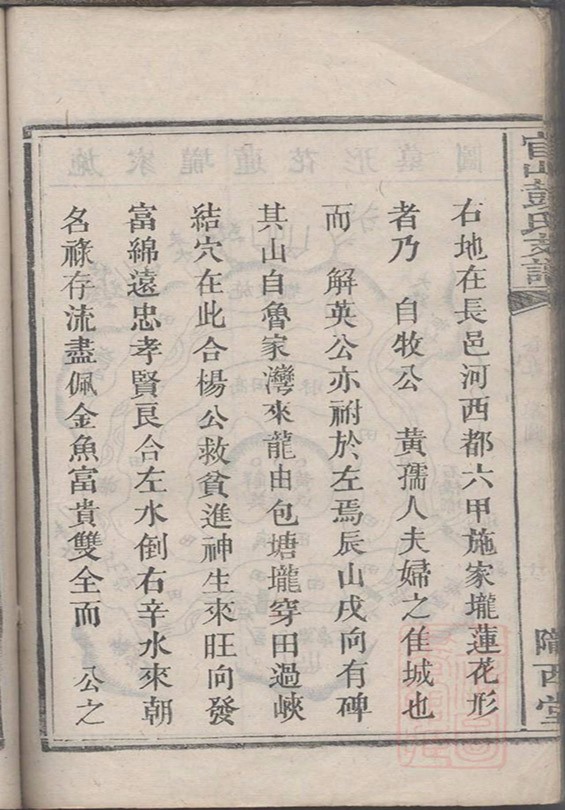 右地在長邑河西都六甲施家壠蓮花形
者乃 自牧公 黃孺人夫婦之佳城也
而 解英公亦祔於左焉辰山戌向有碑
其山自魯家灣來龍由包塘壠穿田過峽
結穴在此合楊公救貧進神生來旺向發
富綿遠忠孝賢良合左水倒右辛水來朝
名祿存流盡佩金魚富貴雙全而 公之
彭氏支譜
隴西堂
圖墓形花蓮壠家施